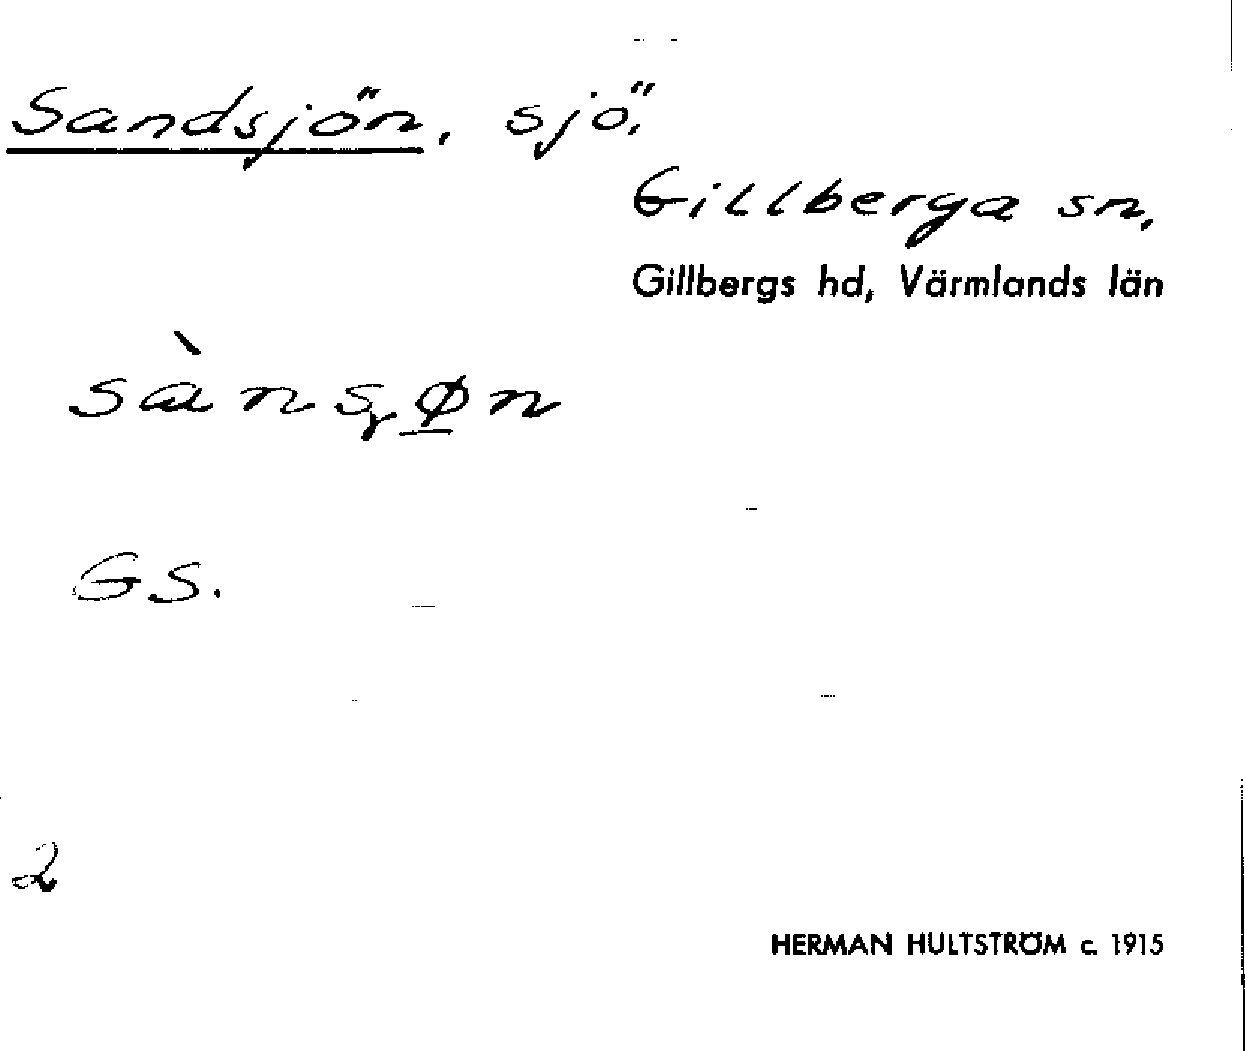 Sandsjön, sjö,
Gillberga sn,
Gillbergs hd, Värmlands län
GS.
2
HERMAN HULTSTRÖM c. 1915